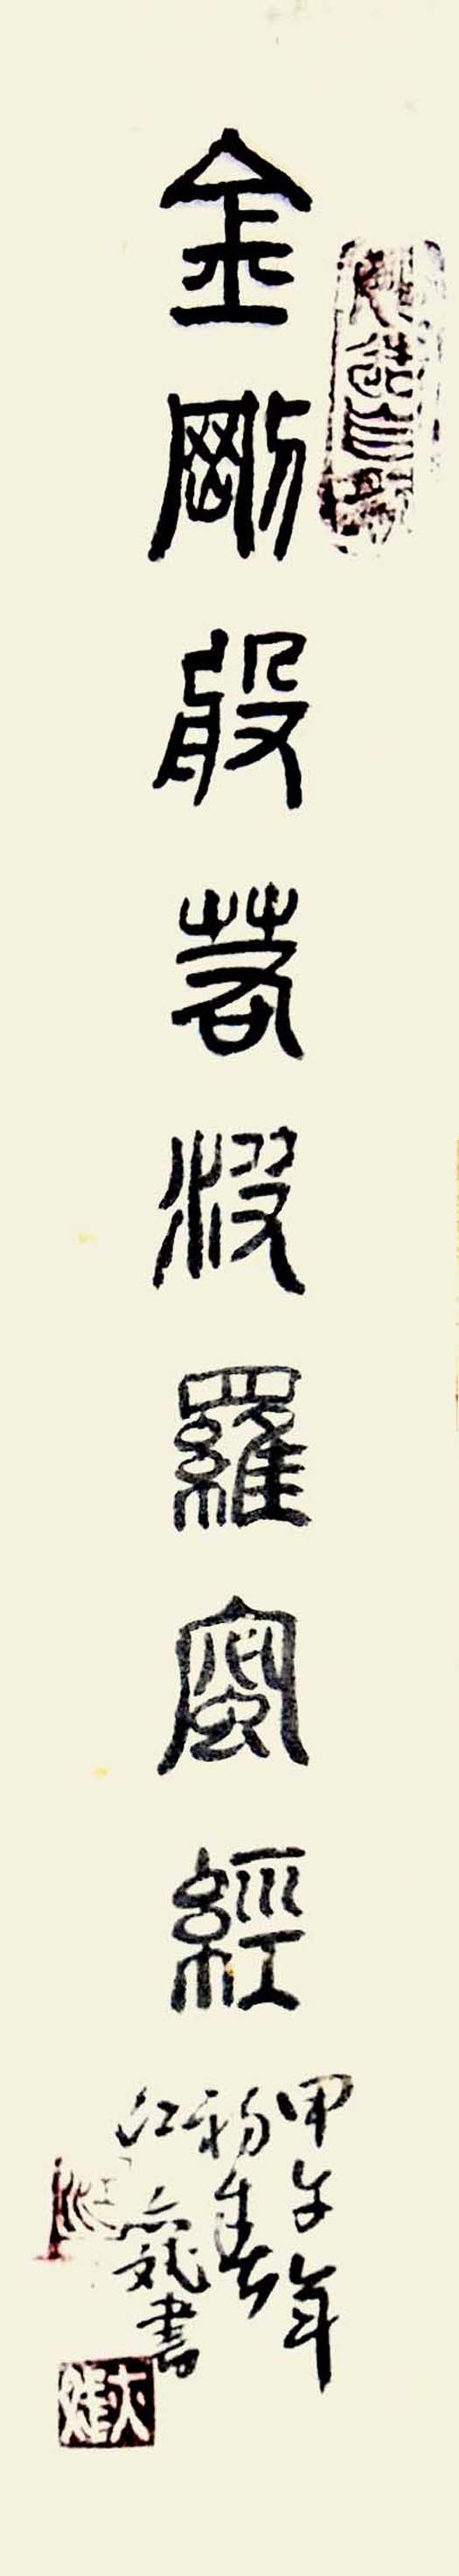 金剛般若波羅蜜經
甲午年
初春
江 書